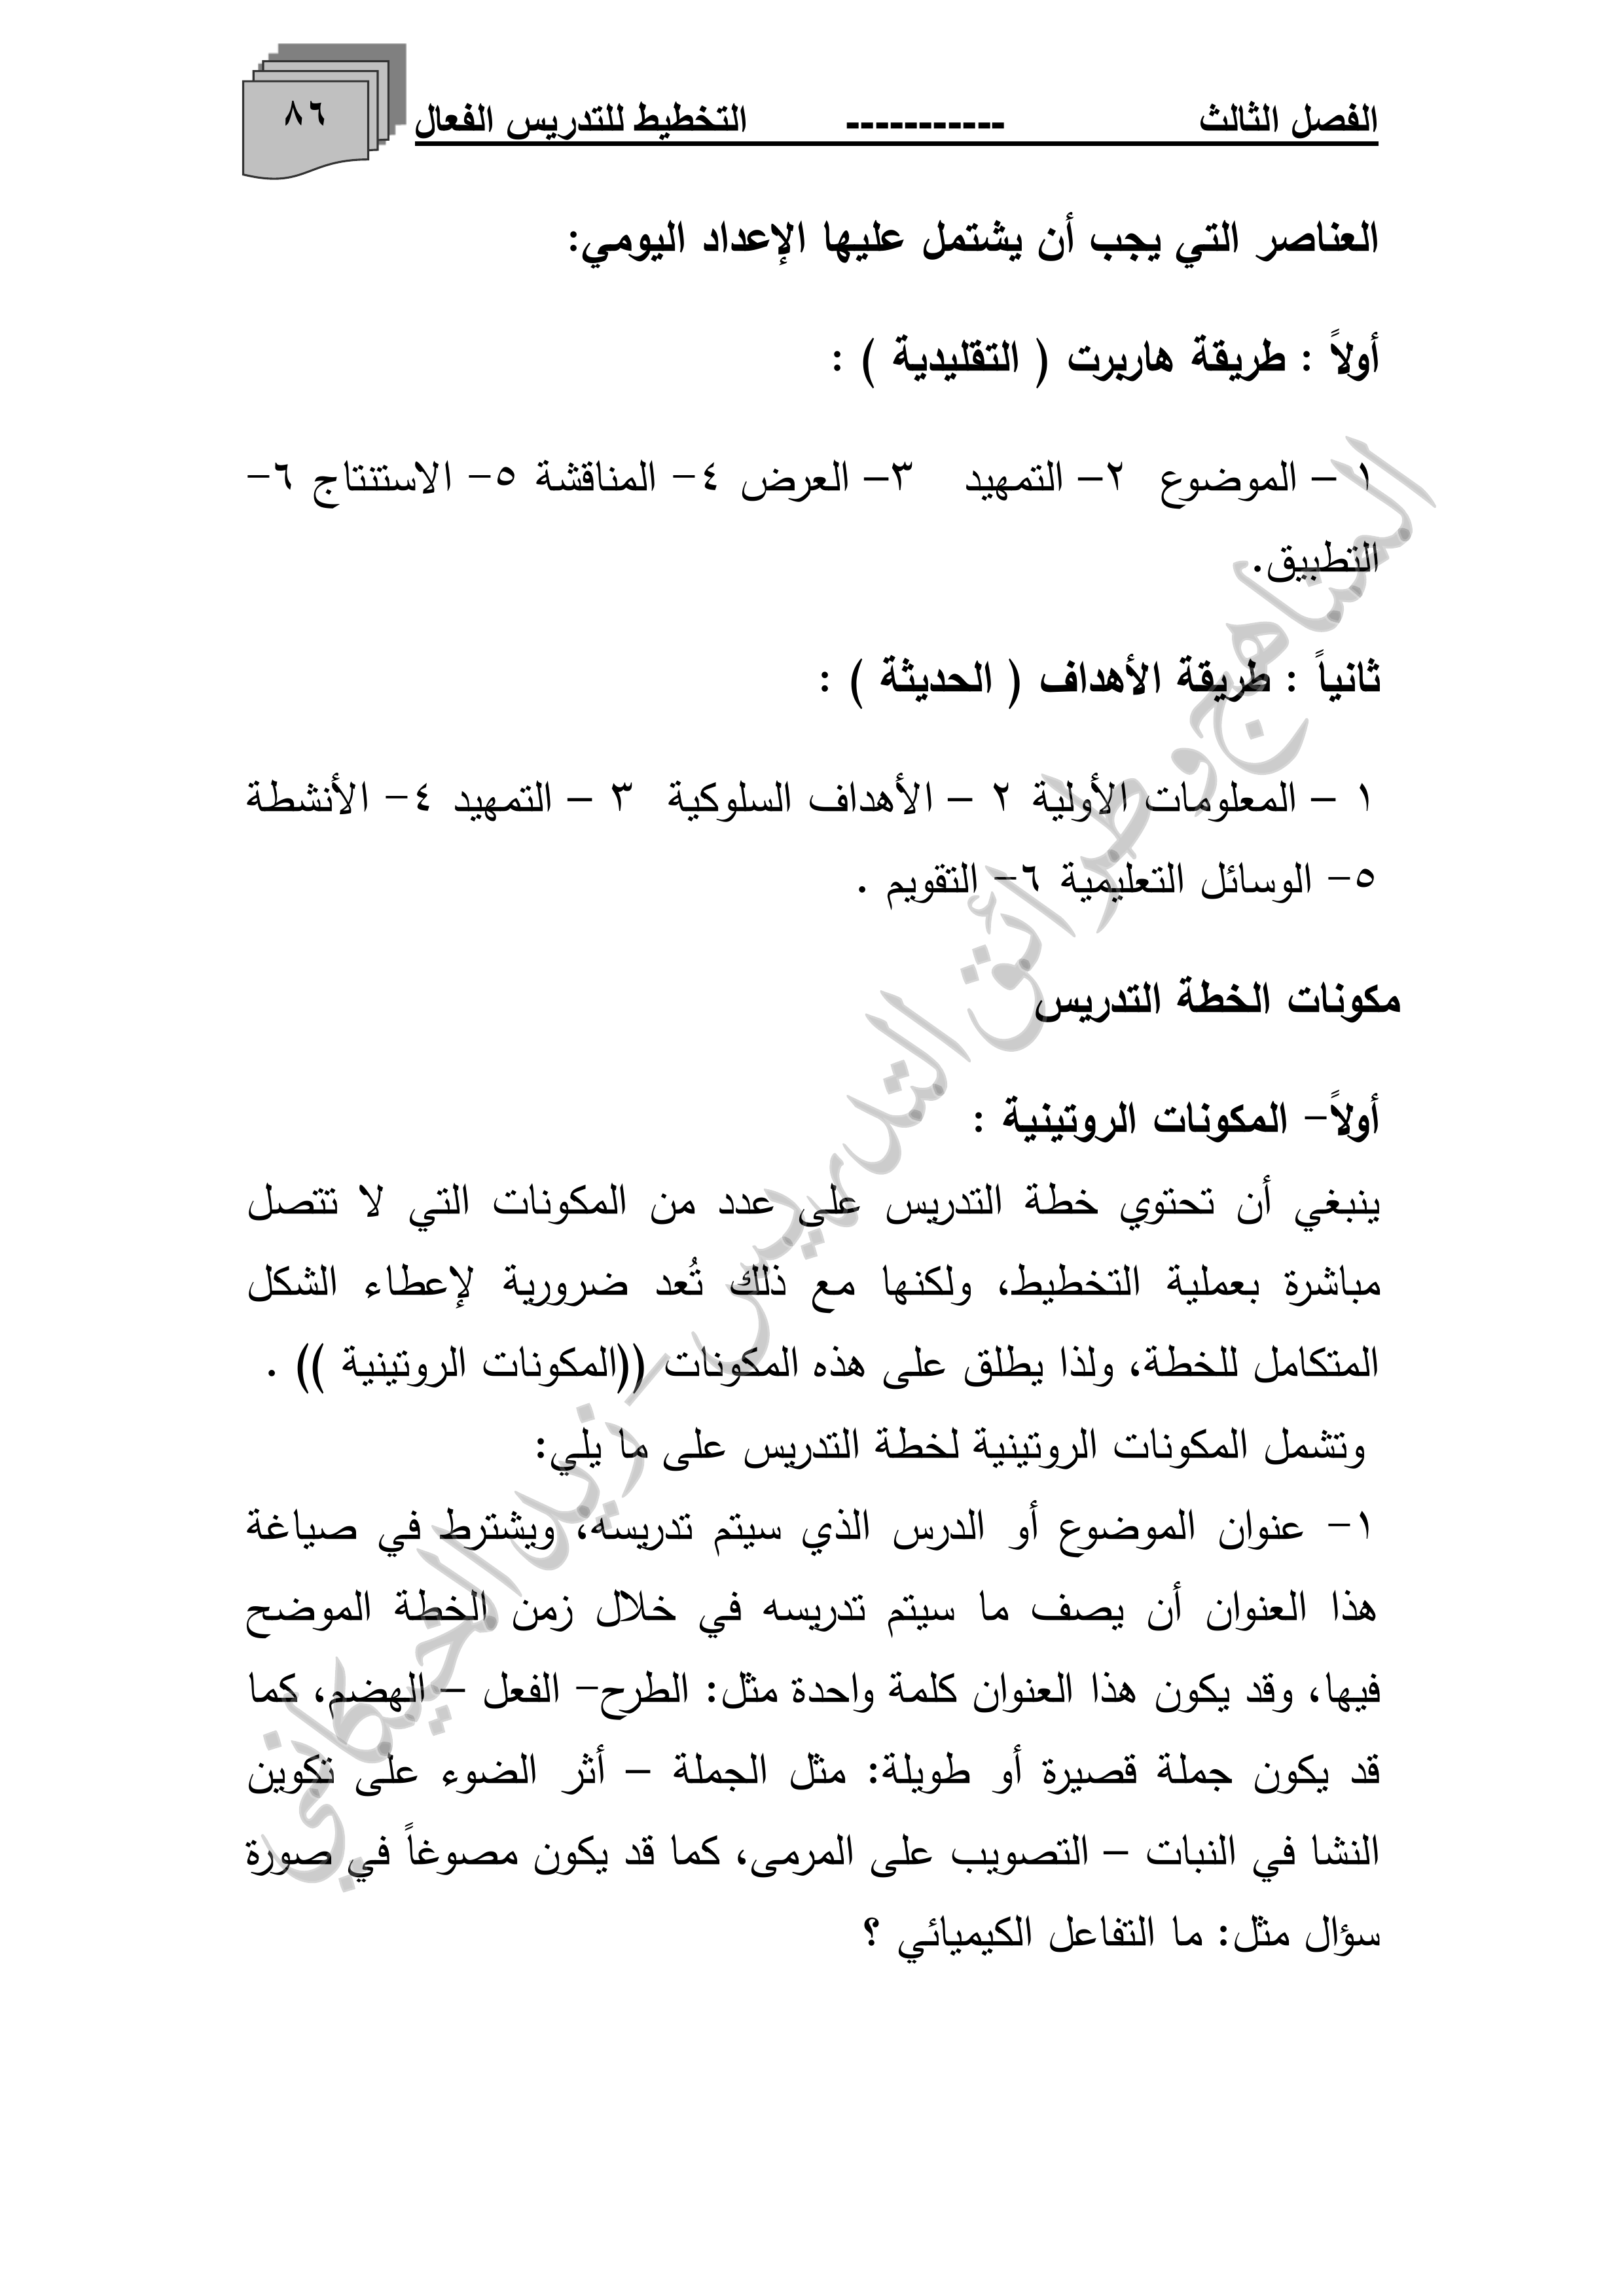 الفصل الثالث ----------- التخطيط للتدريس الفعال ٨٦
العناصر التي يجب أن يشتمل عليها الإعداد اليومي:
أولاً : طريقة هاربرت ( التقليدية ) :
١ – الموضوع ٢– التمهيد ٣– العرض ٤- المناقشة ٥- الاستنتاج ٦-
التطبيق.
ثانياً : طريقة الأهداف ( الحديثة ) :
١ – المعلومات الأولية ٢ – الأهداف السلوكية ٣ – التمهيد ٤- الأنشطة
٥- الوسائل التعليمية ٦- التقويم .
مكونات الخطة التدريس
أولاً- المكونات الروتينية :
ينبغي أن تحتوي خطة التدريس على عدد من المكونات التي لا تتصل
مباشرة بعملية التخطيط، ولكنها مع ذلك تُعد ضرورية لإعطاء الشكل
المتكامل للخطة، ولذا يطلق على هذه المكونات ((المكونات الروتينية )) .
وتشمل المكونات الروتينية لخطة التدريس على ما يلي:
١- عنوان الموضوع أو الدرس الذي سيتم تدريسه، ويشترط في صياغة
هذا العنوان أن يصف ما سيتم تدريسه في خلال زمن الخطة الموضح
فيها، وقد يكون هذا العنوان كلمة واحدة مثل: الطرح- الفعل – الهضم، كما
قد يكون جملة قصيرة أو طويلة: مثل الجملة – أثر الضوء على تكوين
النشا في النبات – التصويب على المرمى، كما قد يكون مصوغاً في صورة
سؤال مثل: ما التفاعل الكيميائي ؟
المناهج وطرائق التدريس - زيد الخيكاني